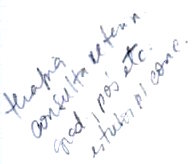 terapia
consulta veterin.
grad / pós etc.
estudos p/ conc.